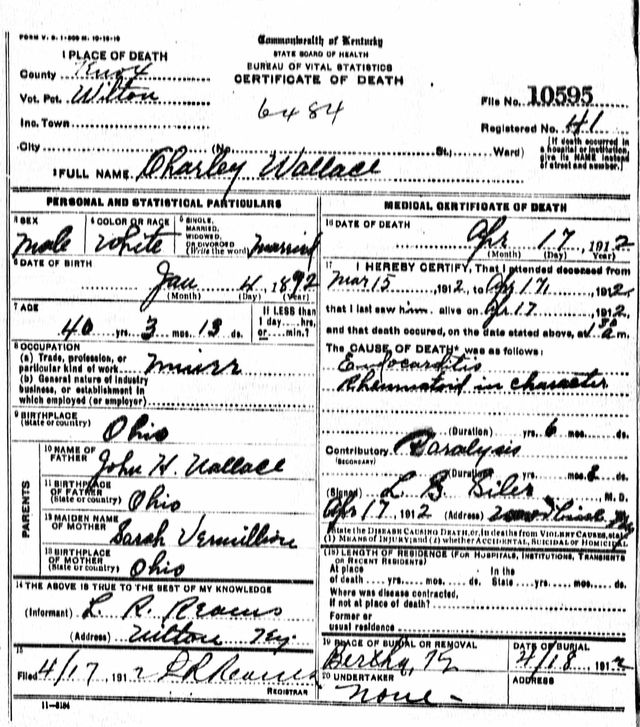 FORM V. S. 1-500 M. 10-10-10
Commonwealth of Kentucky
STATE BOARD OF HEALTH
BUREAU OF VITAL STATISTICS
CERTIFICATE OF DEATH
1 PLACE OF DEATH
County Knox
Vot. Pct. Wilton
Inc. Town
City (No. St.; Ward)
6484
File No. 10595
Registered No. 41
(If death occurred in a hospital or institution, give its NAME instead of street and number.)
2 FULL NAME Charley Wallace
PERSONAL AND STATISTICAL PARTICULARS
3 SEX Male
4 COLOR OR RACE White
5 SINGLE, MARRIED, WIDOWED, OR DIVORCED (Write the word) Married
6 DATE OF BIRTH
Jan 4 1892
(Month) (Day) (Year)
7 AGE
40 yrs. 3 mos. 13 ds.
If LESS than 1 day...hrs. or...min.?
8 OCCUPATION
(a) Trade, profession, or particular kind of work miner
(b) General nature of industry business, or establishment in which employed (or employer)
9 BIRTHPLACE
(State or country) Ohio
PARENTS
10 NAME OF FATHER John H. Wallace
11 BIRTHPLACE OF FATHER (State or country) Ohio
12 MAIDEN NAME OF MOTHER Sarah Vermillion
13 BIRTHPLACE OF MOTHER (State or country) Ohio
14 THE ABOVE IS TRUE TO THE BEST OF MY KNOWLEDGE
(Informant) L. R. Reams
(Address) Wilton Ky
15
Filed 4/17 1912 L R Reams
REGISTRAR
11-3184
MEDICAL CERTIFICATE OF DEATH
16 DATE OF DEATH
Apr 17, 1912
(Month) (Day) (Year)
17 I HEREBY CERTIFY, That I attended deceased from
Mar 15, 1912, to Ap 17, 1912,
that I last saw him alive on Ap 17, 1912,
and that death occured, on the date stated above, at m.
The CAUSE OF DEATH* was as follows:
Endocarditis
Rheumatoid in character
(Duration) yrs. 6 mos. ds.
Contributory Paralysis
(SECONDARY)
(Duration) yrs. mos. ds.
(Signed) L B M. D.
Apr 17, 1912 (Address)
*State the DISEASE CAUSING DEATH, or, in deaths from VIOLENT CAUSES, state
(1) MEANS OF INJURY; and (2) whether ACCIDENTAL, SUICIDAL or HOMICIDAL
(18) LENGTH OF RESIDENCE (FOR HOSPITALS, INSTITUTIONS, TRANSIENTS OR RECENT RESIDENTS)
At place of death yrs. mos. ds. In the State yrs. mos. ds.
Where was disease contracted, If not at place of death?
Former or usual residence
19 PLACE OF BURIAL OR REMOVAL Bertha, Ky
DATE OF BURIAL 4/18, 1912
20 UNDERTAKER none
ADDRESS